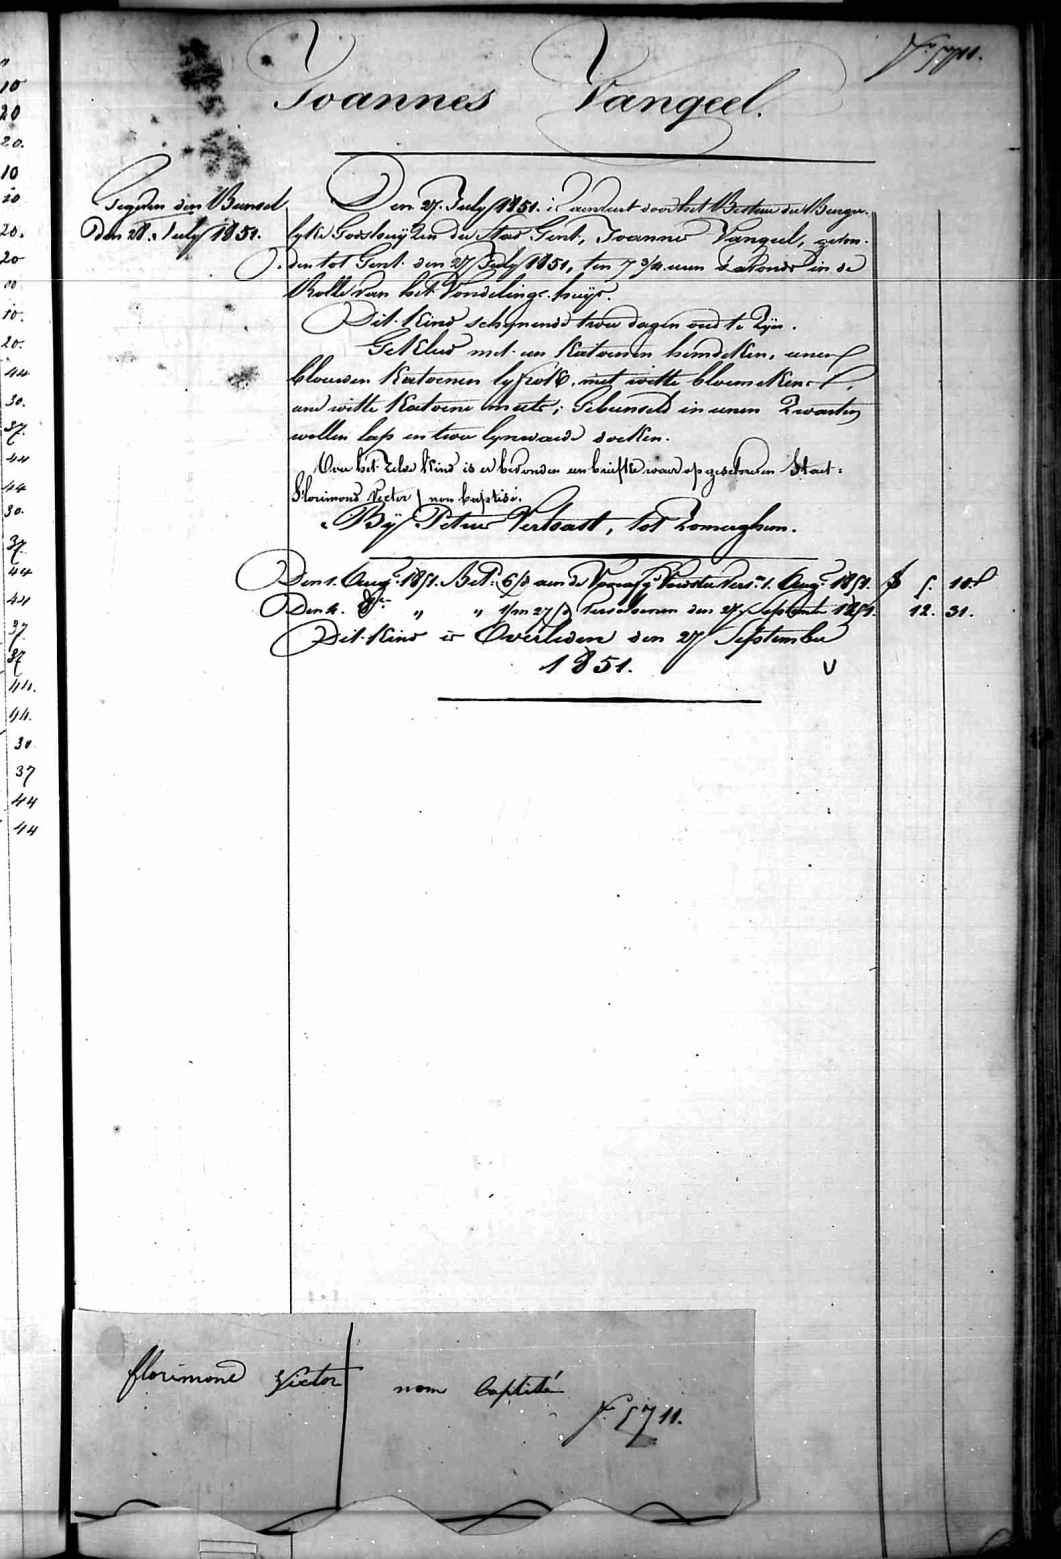 10
20
20.
10
20
20.
20
10.
20.
44
30.
37.
44
44
30.
37.
44
44
37
37
44.
44.
30
37
44
44
F° 5711.
Joannes Vangeel.
Gegeven den Bunsel
den 28. July 1851.
Den 27. July 1851. is aenveert door het Bestuer der Burger-
lyke Godshuyzen der Stad Gent, Joannes Vangeel, gevon-
den tot Gent den 27 July 1851, ten 7 3/4 uren s'avonds in de
Rolle van het Vondelinge-huys.
Dit Kind schynende twee dagen oud te zyn.
Gekleed met een Katoenen hemdeken, eenen
blauwen Katoenen lyfrok met witte bloemekens,
eene witte Katoene muts; Gebunseld in eenen zwarten
wollen lap en twee lynwaede doeken.
Over het zelve Kind is er bevonden een briefke waer op geschreven staet:
Florimond Victor / non baptisé.
Bÿ Petrus Verhaest, tot Zomerghem.
Den 1. Aug. 1851. Bet. 6/d aen de Voorsz. Vers. 1. Aug. 1851. f 5. 10.
Den 4. 8bre " " 1/m 27/d verschenen den 27. September 1851. 12. 31.
Dit Kind is Overleden den 27 September
1851.
V
florimond Victor nom baptisé
f. 5711.